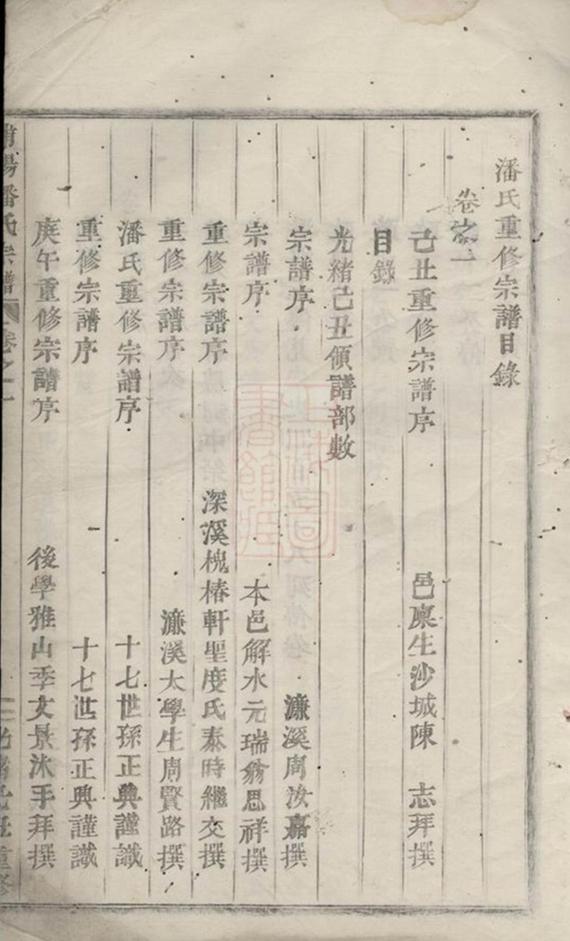 潘氏重修宗譜目錄
卷之一
己丑重修宗譜序 邑廩生沙城陳 志拜撰
目錄
光緒己丑領譜部數
宗譜序 濂溪周汝嘉撰
宗譜序 本邑解水元瑞翁思祥撰
重修宗譜序 深溪槐椿軒聖度氏泰時繼交撰
重修宗譜序 濂溪太學生周賢路撰
潘氏重修宗譜序 十七世孫正典謹識
重修宗譜序 十七世孫正典謹識
庚午重修宗譜序 後學雅山季文景沐手拜撰
陽潘氏宗譜 卷之一